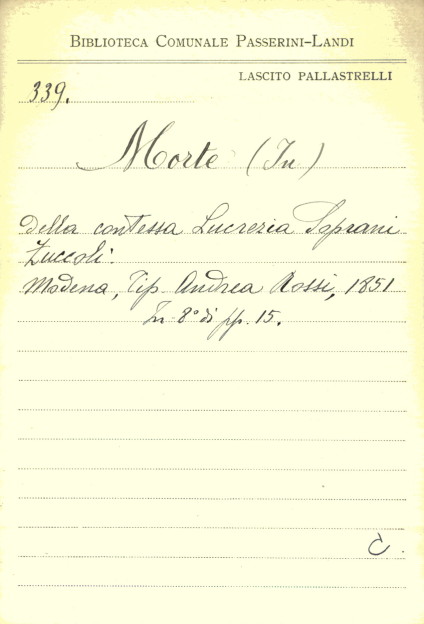 BIBLIOTECA COMUNALE PASSERINI-LANDI
LASCITO PALLASTRELLI
339.
Morte (In)
della contessa Lucrezia Soprani
Zuccoli.
Modena, Tip. Andrea Rossi, 1851
In 8° di pp. 15.
C.